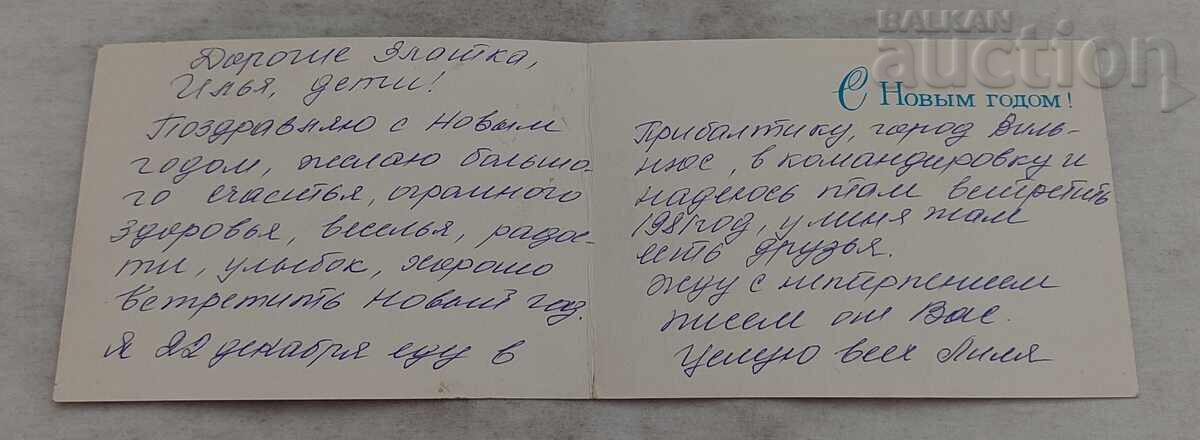 Дорогие Златка,
Илья, дети!
Поздравляю с Новым
годом, желаю большо-
го счастья, огромного
здоровья, веселья, радос-
ти, улыбок, хорошо
встретить Новый год.
Я 22 декабря еду в
BALKAN
auction
С Новым годом!
Прибалтику, город Виль-
нюс, в командировку и
надеюсь там встретить
1981 год, у меня там
есть друзья.
Жду с нетерпением
писем от Вас.
Целую всех Лиля